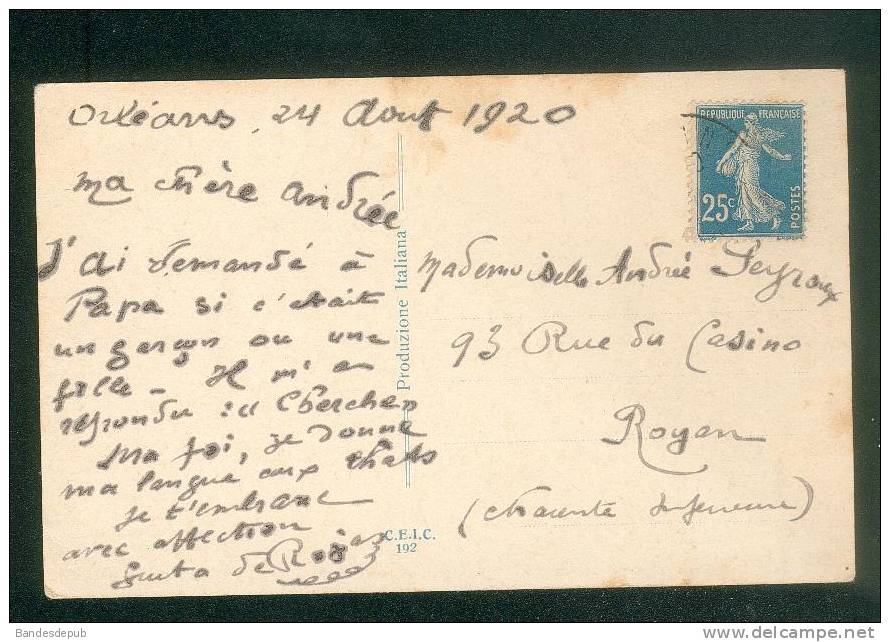 Orléans, 24 Aout 1920
Ma chère Andrée
J'ai demandé à
Papa si c'etait
un garçon ou une
fille - Il m'a
répondu : "Cherche"
Ma foi, je donne
ma langue aux chats
Je t'embrasse
avec affection
de
Mademoiselle Andrée Peyroux
93 Rue du Casino
Royan
(Charente Inferieure)
REPUBLIQUE FRANÇAISE
25c
POSTES
Produzione Italiana
C.E.I.C.
192
Bandesdepub
www.delcampe.net